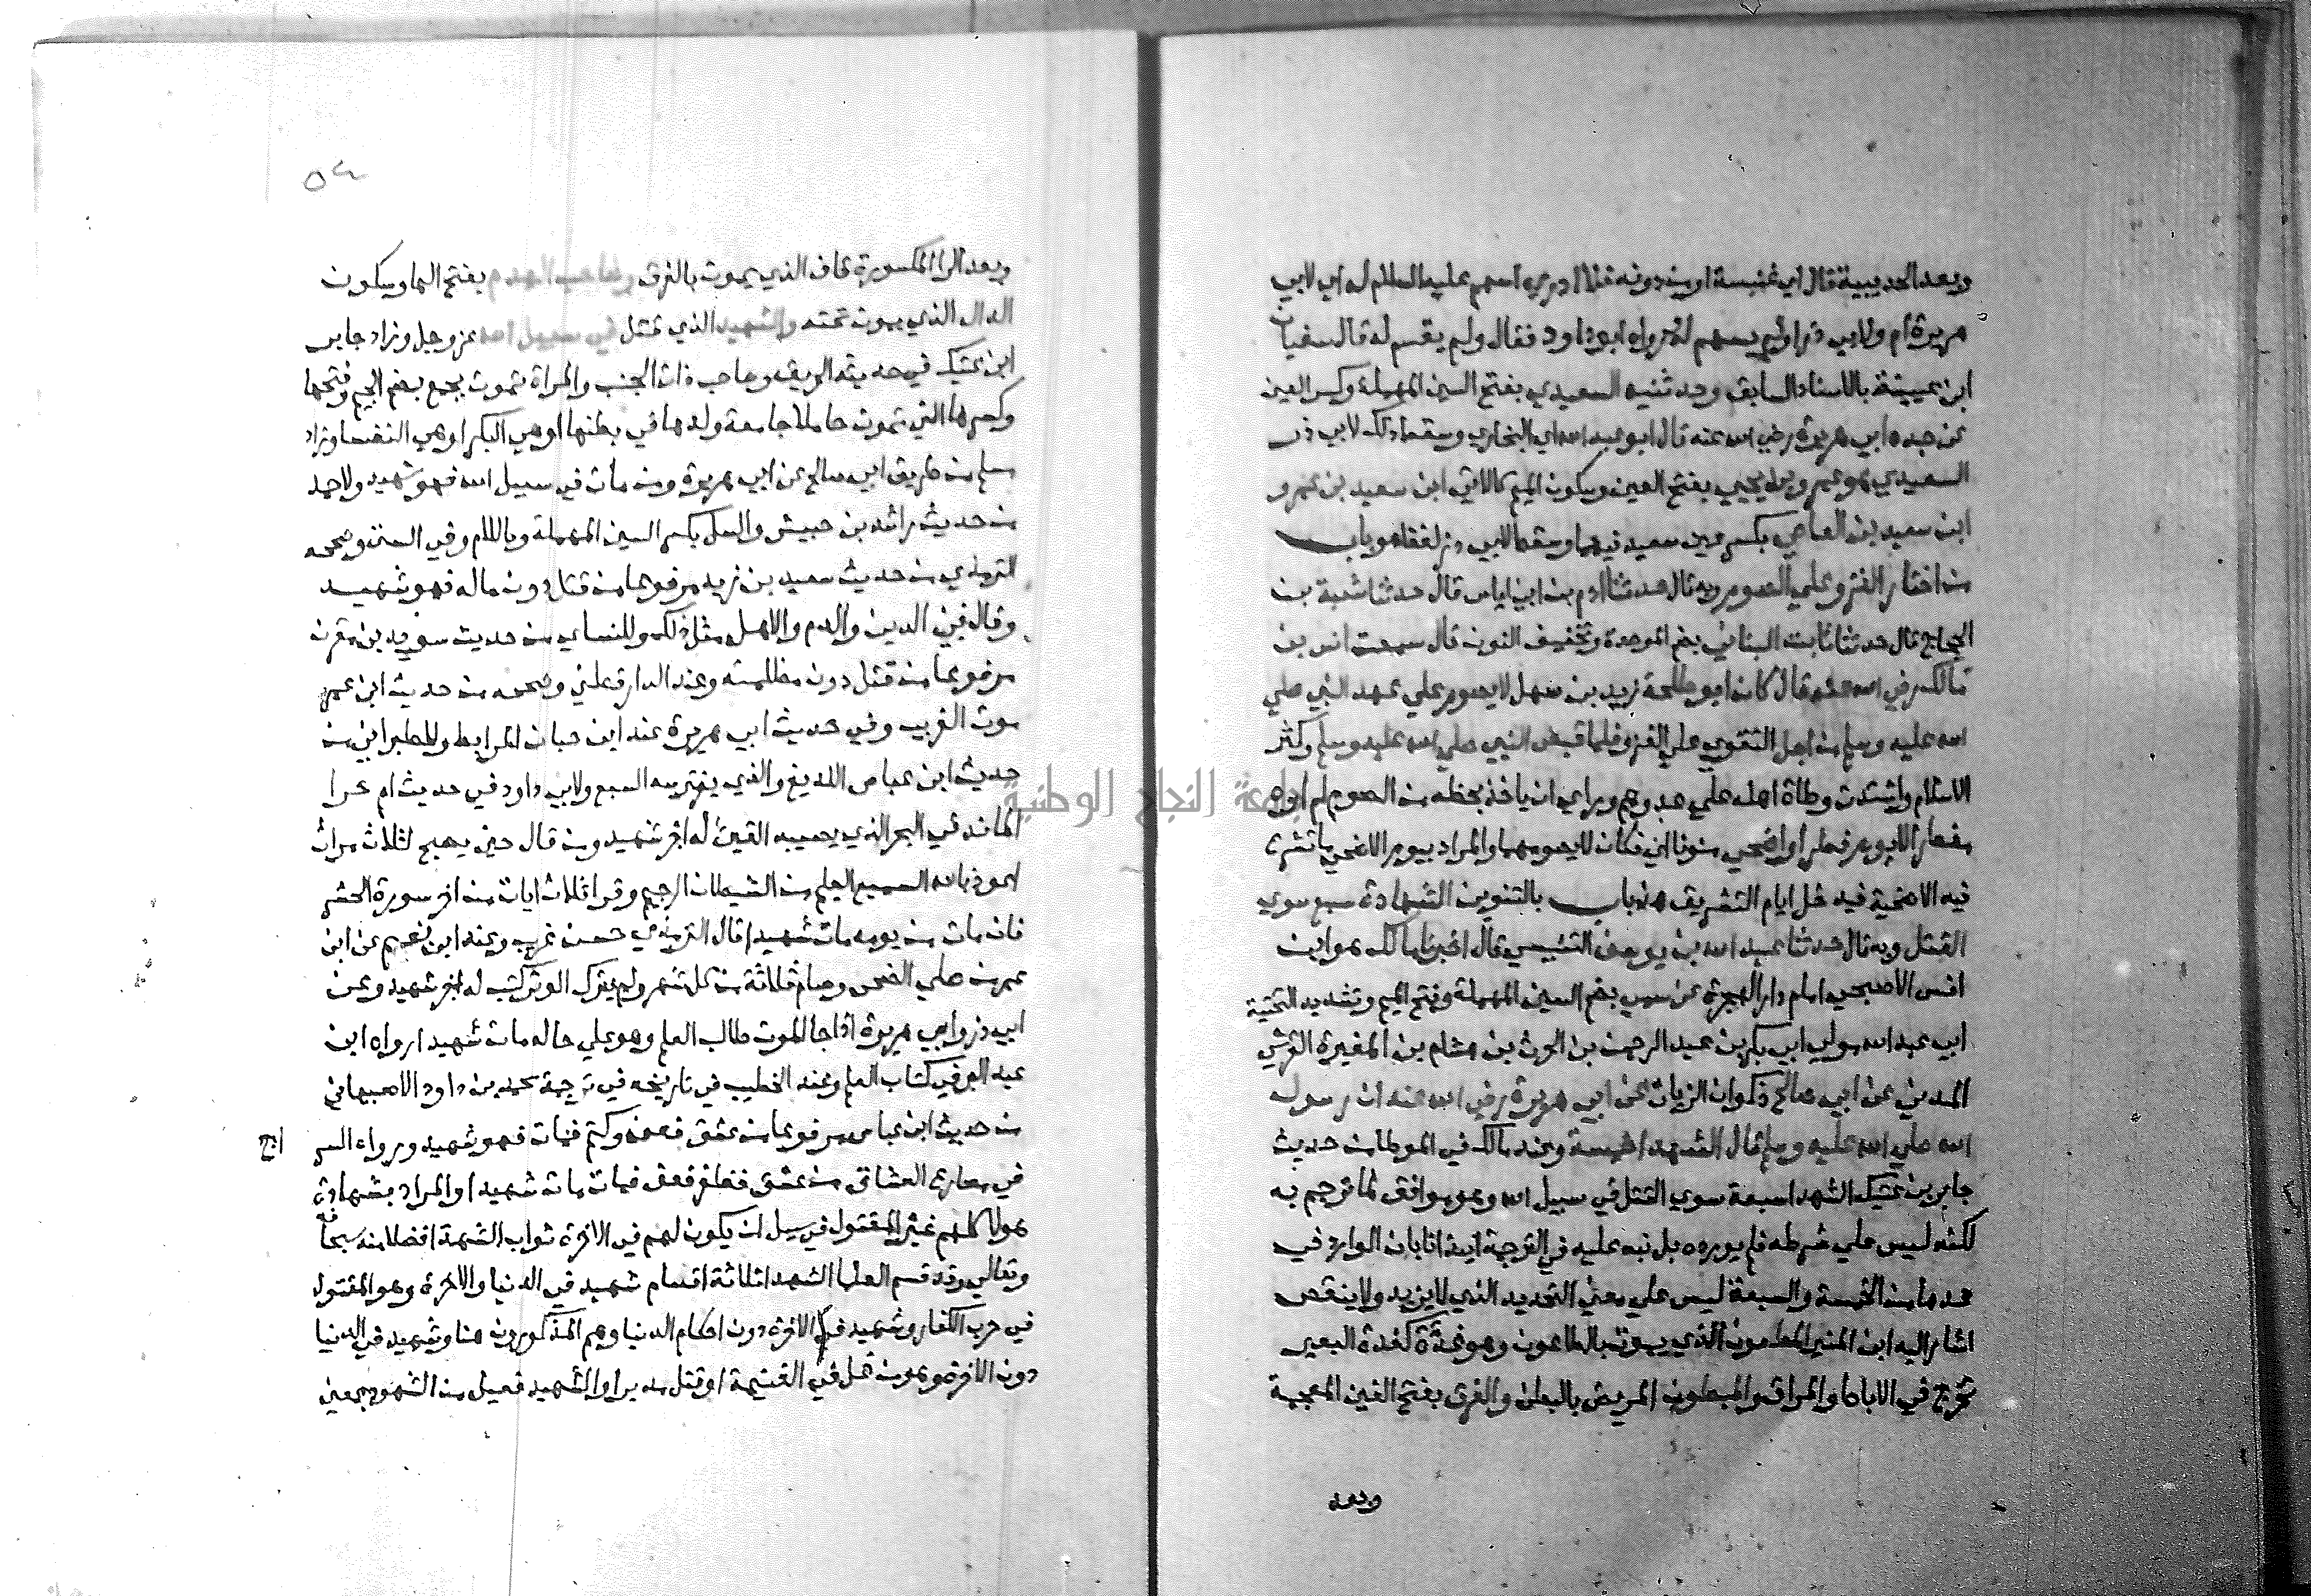 وبعد الحديبية قال اي عنبسة او من دونه فلا ادري اسهم عليه السلام له اي لابي
هريرة ام ولابي ذر او لم يسهم له ورواه ابو داود فقال ولم يقسم له قال سفيان
ابن عيينة بالاسناد السابق وحدثنيه السعيدي بفتح السين المهملة وكسر العين
عن جده ابي هريرة رضي الله عنه قال ابو عبد الله اي البخاري وسقط ذلك لابي ذر
السعيدي هو عمرو بن يحيي بفتح العين وسكون الميم كالاتي ابن سعيد بن عمرو
ابن سعيد بن العاصي بكسر عين سعيد فيهما وسقط لابي ذر لفظ هو باب
من اختار الغزو علي الصوم وبه قال حدثنا ادم بن ابي اياس قال حدثنا شعبة بن
الحجاج قال حدثنا ثابت البناني بضم الموحدة وتخفيف النون قال سمعت انس بن
مالك رضي الله عنه قال كان ابو طلحة زيد بن سهل لا يصوم علي عهد النبي صلي
الله عليه وسلم من اجل التقوي علي الغزو فلما قبض النبي صلي الله عليه وسلم وكثر
الاسلام واشتدت وطاة اهله علي عدوهم وراي ان ياخذ بحظه من الصوم لم اره
مفطرا الا يوم فطر او اضحي منونا اي فكان لا يصومهما والمراد بيوم الاضحي ما تشرع
فيه الاضحية فيدخل ايام التشريق هذا باب بالتنوين الشهادة سبع سوي
القتل وبه قال حدثنا عبد الله بن يوسف التنيسي قال اخبرنا مالك هو ابن
انس الاصبحي امام دار الهجرة عن سمي بضم السين المهملة وفتح الميم وتشديد التحتية
ابي عبد الله مولي ابي بكر بن عبد الرحمن بن الحرث بن هشام بن المغيرة القرشي
المدني عن ابي صالح ذكوان الزيات عن ابي هريرة رضي الله عنه ان رسول
الله صلي الله عليه وسلم قال الشهدا خمسة وعند مالك في الموطا من حديث
جابر بن عتيك الشهدا سبعة سوي القتل في سبيل الله وهو موافق لما ترجم به
لكنه ليس علي شرطه فلم يورده بل نبه عليه في الترجمة ايذانا بان الوارد في
عددها من الخمسة والسبعة ليس علي معني التحديد الذي لا يزيد ولا ينقص
اشار اليه ابن المنير المطعون الذي يموت بالطاعون وهو غدة كغدة البعير
تخرج في الاباط والمراق والمبطون المريض بالبطن والغرق بفتح الغين المعجمة
وبعد
٥٤
وبعد الرا المكسورة قاف الذي يموت بالغرق وصاحب الهدم بفتح الها وسكون
الدال الذي يموت تحته والشهيد الذي قتل في سبيل الله عز وجل وزاد جابر
ابن عتيك في حديثه الحريق وصاحب ذات الجنب والمراة تموت بجمع بضم الجيم وفتحها
وكسرها التي تموت حاملا جامعة ولدها في بطنها او هي البكر او هي النفسا وزاد
مسلم من طريق ابي صالح عن ابي هريرة ومن مات في سبيل الله فهو شهيد ولاحمد
من حديث راشد بن حبيش والسل بكسر السين المهملة وباللام وفي السنن وصححه
الترمذي من حديث سعيد بن زيد مرفوعا من قتل دون ماله فهو شهيد
وقال في الدين والدم والاهل مثل ذلك وللنساي من حديث سويد بن مقرن
مرفوعا من قتل دون مظلمته وعند الدارقطني وصححه من حديث ابن عمر
موت الغريب وفي حديث ابي هريرة عند ابن حبان المرابط وللطبراني من
حديث ابن عباس اللديغ والذي يفترسه السبع ولابي داود في حديث ام حرا
المائد في البحر الذي يصيبه القيئ له اجر شهيد ومن قال حين يصبح ثلاث مرات
اعوذ بالله السميع العليم من الشيطان الرجيم وقرا ثلاث ايات من اخر سورة الحشر
فان مات من يومه مات شهيدا قال الترمذي حسن غريب وعند ابن نعيم عن ابن
عمر من صلي الضحي وصام ثلاثة من كل شهر ولم يترك الوتر كتب له اجر شهيد وعن
ابي ذر وابي هريرة اذا جا الموت طالب العلم وهو علي حاله مات شهيدا رواه ابن
عبد البر في كتاب العلم وعند الخطيب في تاريخه في ترجمة محمد بن داود الاصبهاني
من حديث ابن عباس مرفوعا من عشق فعف وكتم فمات فهو شهيد ورواه السراج
في مصارع العشاق من عشق فظفر فعف فمات مات شهيدا والمراد بشهادة
هولا كلهم غير المقتول في سبيل الله ان يكون لهم في الاخرة ثواب الشهدا فضلا منه سبحانه
وتعالي وقد قسم العلما الشهدا ثلاثة اقسام شهيد في الدنيا والاخرة وهو المقتول
في حرب الكفار وشهيد في الاخرة دون احكام الدنيا وهم المذكورون هنا وشهيد في الدنيا
دون الاخرة وهو من غل في الغنيمة او قتل مدبرا والشهيد فعيل من الشهود بمعني
جامعة النجاح الوطنية